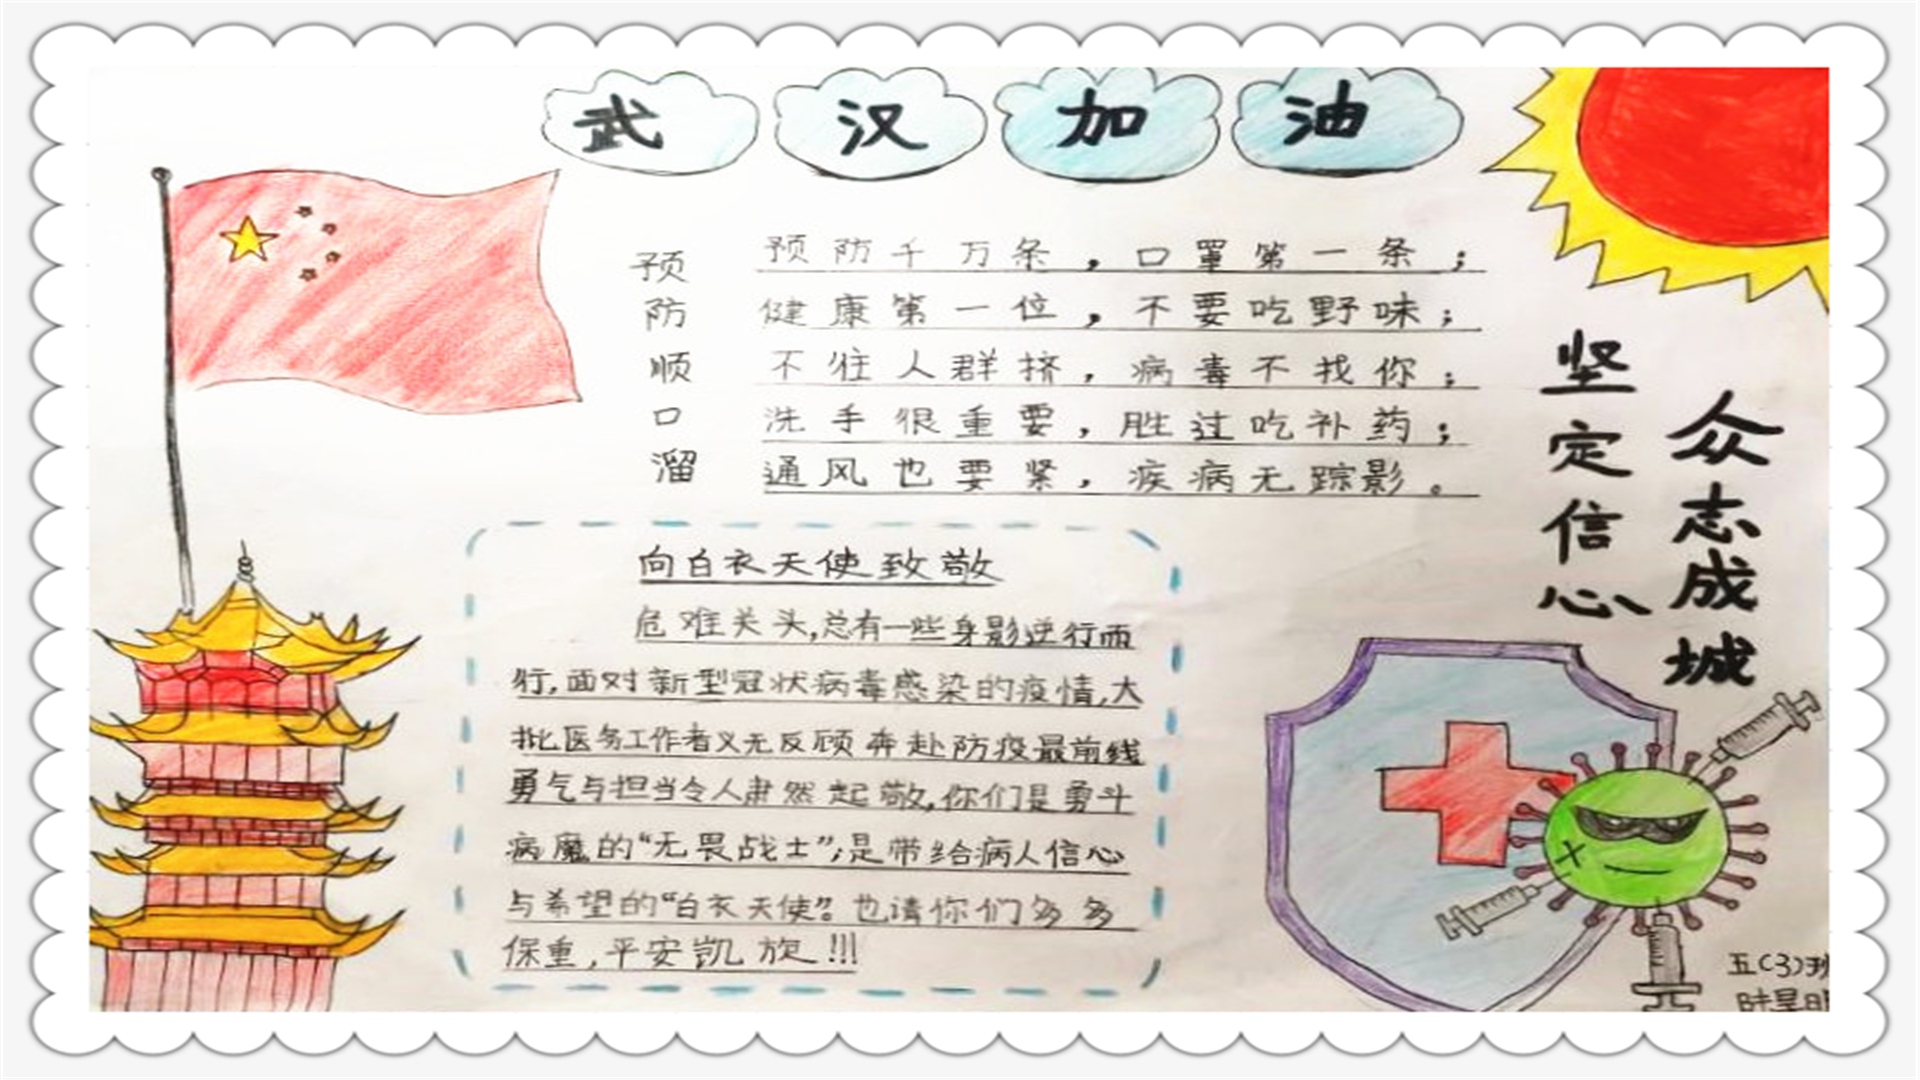 武汉加油
预防顺口溜
预防千万条，口罩第一条；
健康第一位，不要吃野味；
不往人群挤，病毒不找你；
洗手很重要，胜过吃补药；
通风也要紧，疾病无踪影。
坚定信心
众志成城
向白衣天使致敬
危难关头,总有一些身影逆行而
行,面对新型冠状病毒感染的疫情,大
批医务工作者义无反顾奔赴防疫最前线
勇气与担当令人肃然起敬,你们是勇斗
病魔的“无畏战士”;是带给病人信心
与希望的“白衣天使”。也请你们多多
保重,平安凯旋!!!
五(3)班